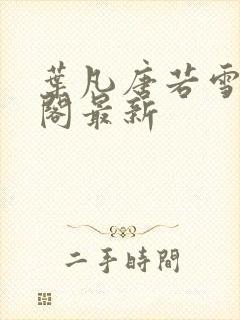 葉凡唐若雪
閣最新
二手時間